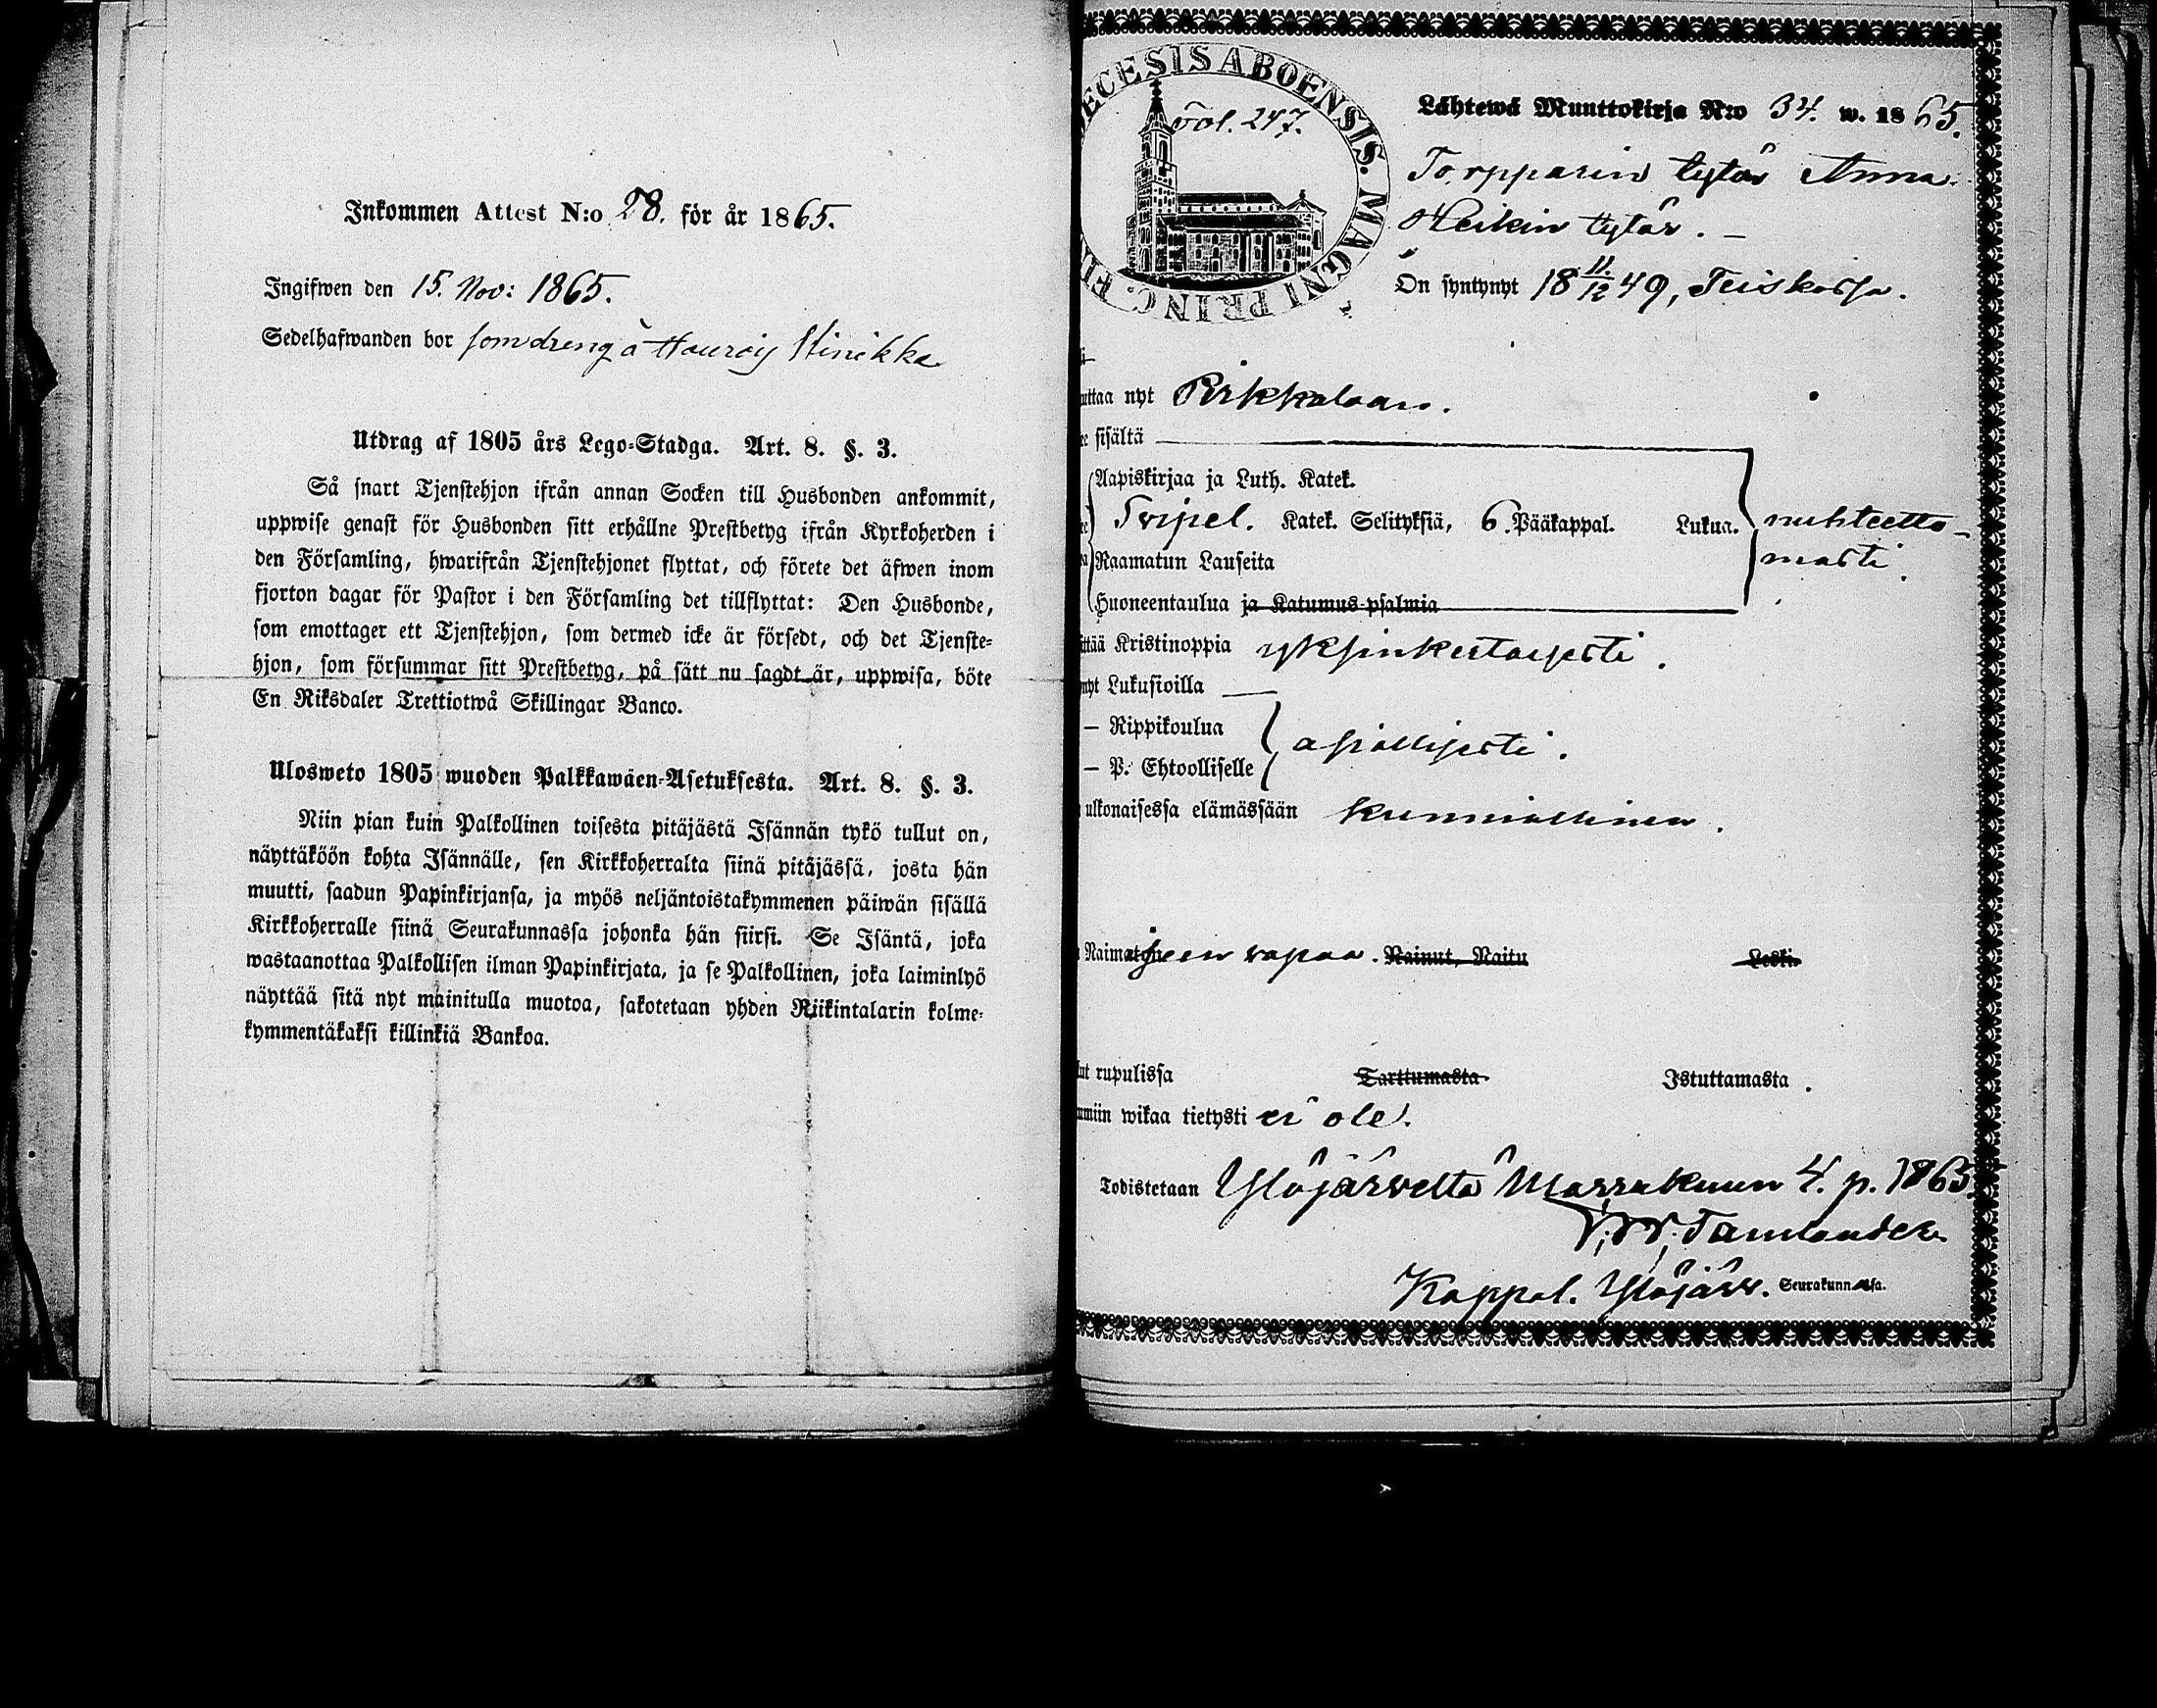 Inkommen Attest N:o 28. för år 1865.
Ingifwen den 15. Nov: 1865.
Sedelhafwanden bor som dreng å
Utdrag af 1805 års Lego-Stadga. Art. 8. §. 3.
Så snart Tjenstehjon ifrån annan Socken till Husbonden ankommit,
uppwise genast för Husbonden sitt erhållne Prestbetyg ifrån Kyrkoherden i
den Församling, hwarifrån Tjenstehjonet flyttat, och förete det äfwen inom
fjorton dagar för Pastor i den Församling det tillflyttat: Den Husbonde,
som emottager ett Tjenstehjon, som dermed icke är försedt, och det Tjenste-
hjon, som försummar sitt Prestbetyg, på sätt nu sagdt är, uppwisa, böte
En Riksdaler Trettiotwå Skillingar Banco.
Ulosweto 1805 wuoden Palkkawäen-Asetuksesta. Art. 8. §. 3.
Niin pian kuin Palkollinen toisesta pitäjästä Isännän tykö tullut on,
näyttäköön kohta Isännälle, sen Kirkkoherralta siinä pitäjässä, josta hän
muutti, saadun Papinkirjansa, ja myös neljäntoistakymmenen päiwän sisällä
Kirkkoherralle siinä Seurakunnassa johonka hän siirsi. Se Isäntä, joka
wastaanottaa Palkollisen ilman Papinkirjata, ja se Palkollinen, joka laiminlyö
näyttää sitä nyt mainitulla muotoa, sakotetaan yhden Riikintalarin kolme-
kymmentäkaksi killinkiä Bankoa.
ECESIS ABOENSIS. MAGNI PRINC. FI
Fol. 247.
Lähtewä Muuttokirja N:o 34. w. 1865.
Torpparin tytär Anna
Heikin tytär. –
On syntynyt 18 11/12 49, Teiskossa.
uttaa nyt Pirkkalaan.
sisältä
Aapiskirjaa ja Luth. Katek.
Tripel. Katek. Selityksiä, 6. Pääkappal. Lukua. nuhteetto-
masti.
Raamatun Lauseita
Huoneentaulua ja Katumus-psalmia
ittää Kristinoppia yksinkertaisesti.
nyt Lukusioilla —
– Rippikoulua
asiallisesti.
– P. Ehtoolliselle
ulkonaisessa elämässään kunniallinen.
Naimiseen vapaa. Nainut, Naitu Leski.
ut rupulissa Tarttumasta Istuttamasta.
miin wikaa tietysti ei ole.
Todistetaan Ylöjärveltä Marrakuun 4. p. 1865.
Tamlander
Kappal. Ylöjärv. Seurakunnassa.